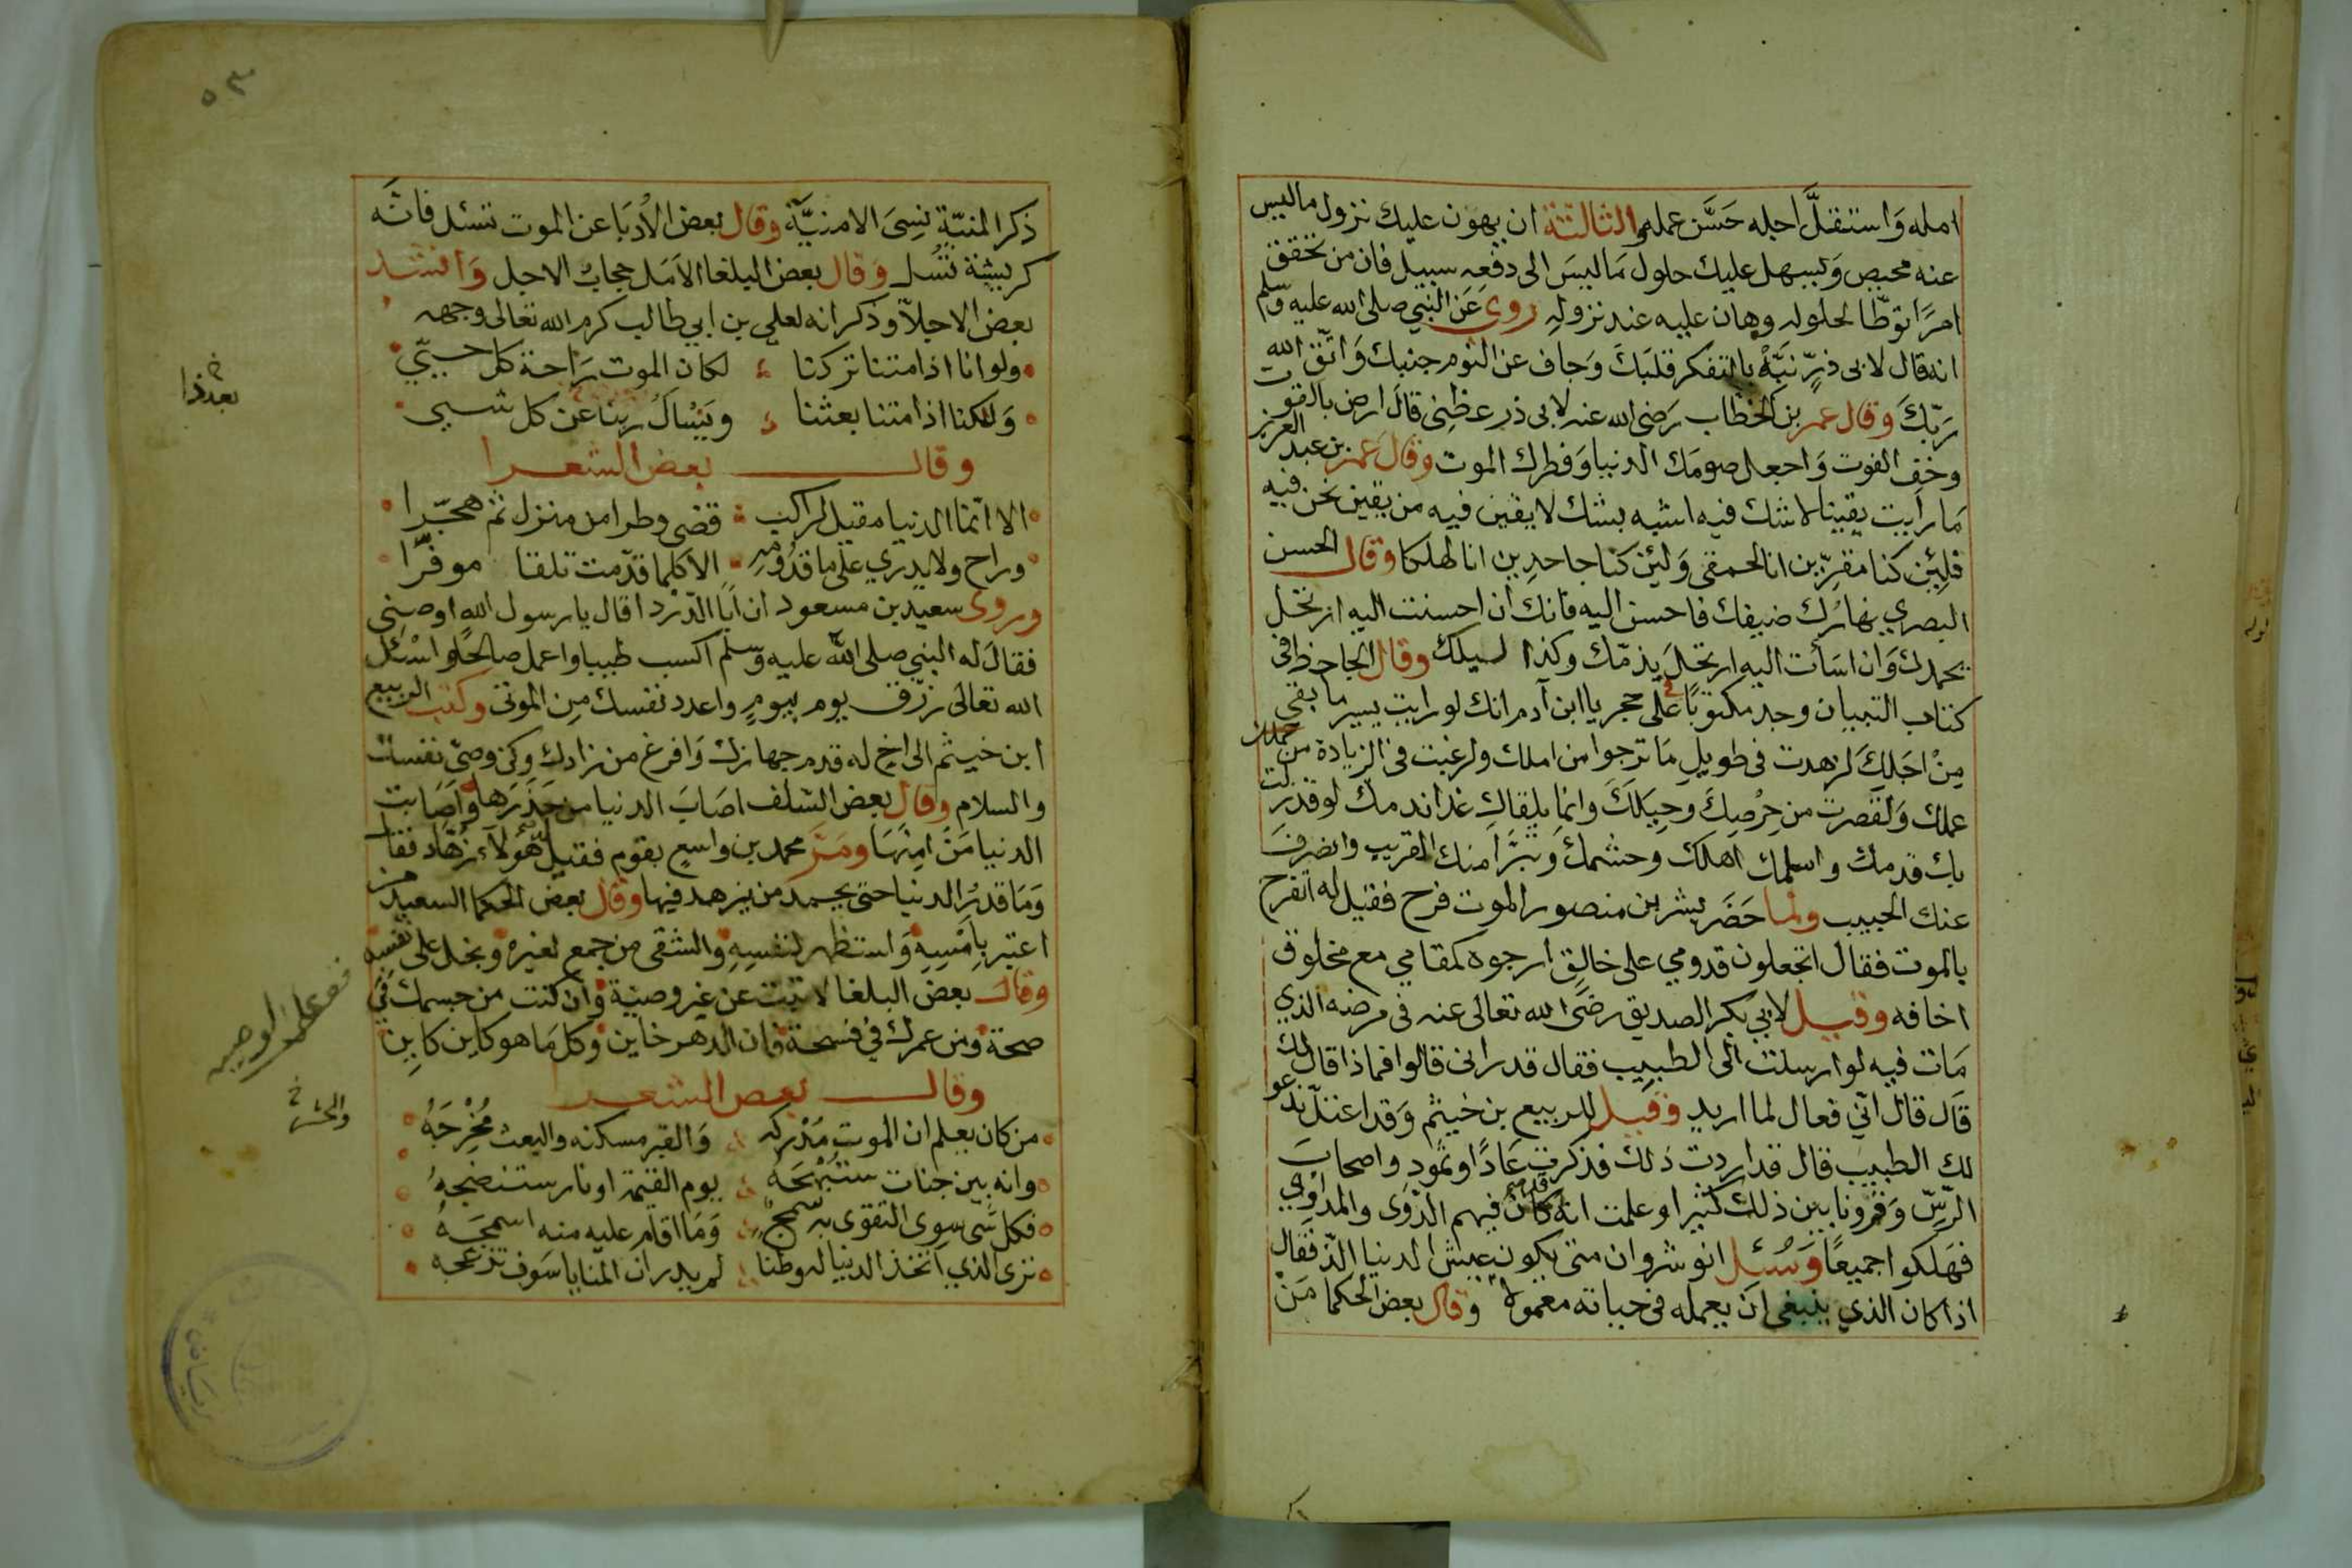 امله وَاستقلَّ اجله حَسَّن عمله والثالثة ان يهون عليك نزول ما ليس
عنه محيص وَيسهل عليك حلول مَا ليسَ الى دفعه سبيل فان من تحقق
امرًا توطّا لحلوله وهان عليه عند نزولهِ روى عَن النبي صلى الله عليه وسلم
انه قال لابى ذرٍّ نَبِّهْ بالتفكر قلبَكَ وَجاف عن النوم جنبك وَاتّق الله
رَبّكَ وقال عمر بن الخطاب رَضى الله عنه لابى ذر عظنى قالَ ارض بالقوت
وخف الفوت وَاجعل صومَك الدنيا وَفطرك الموت وقال عمر بن عبد العزيز
مَا رأيت يقينا لا شك فيه اشبه بشك لا يقين فيه من يقين نحن فيه
فلئِن كنا مقرِّين انا لحمقى وَلئن كنا جاحدين انا لهلكا وقال الحسن
البصري نهارُك ضيفك فاحسن اليه فانك ان احسنت اليه ارتحل
بحمدك وَان اسَأت اليهِ ارتحلَ بذمّك وكذا ليلك وقال الجاحظ فى
كتاب التبيان وجد مكتوبًا على حجر يا ابن آدم انك لو رايت يسير ما بقى
مِنْ اجَلِكَ لزهدت فى طويلِ مَا ترجوا من املك ولرغبت فى الزيادة من
عملك وَلقصرت من حِرْصِكَ وحِيَلكَ وانما يلقاك غدا ندمك لو قد زلت
بك قدمك واسلمك اهلك وحشمك وتبرَّا منك القريب وانصرفَ
عنك الحبيب ولما حَضَر بشر بن منصور الموت فرح فقيل له اتفرح
بالموت فقال اتجعلون قدومي على خالِقٍ ارجوه كمقامي مع مخلوق
اخافه وقيل لابي بكر الصديق رضى الله تعالى عنه فى مرضه الذي
مَات فيه لو ارسلت الى الطبيب فقال قد رانى قالوا فماذا قال لك
قَال قال انّي فعال لما اريد وقيل للربيع بن خيثم وَقد اعتلّ ندعو
لك الطبيب قال قد اردت ذلك فذكرت عَادًا وثمود واصحابَ
الرّسّ وَقرونا بين ذلك كثيرا وعلمت انه كان فيهم الدّوى والمداوى
فهَلكوا جميعًا وَسُئل انوشروان متى يكون عيش الدنيا الذّ فقال
اذا كان الذي ينبغى ان يعمله فى حياته معمولا وقال بعض الحكما مَنْ
٥٣
ذكر المنيّة نسِىَ الامنيَّة وقال بعض الأدبَا عن الموت تسئل فانّه
كريشة تُسَل وَقال بعض البلغا الامَل حجاب الاجل وَانشد
بعض الاجلّا وذكر انه لعلى بن ابي طالب كرم الله تعالى وجهه
ولو انا اذا متنا تركنا لكان الموت رَاحة كل حيّي
وَلكنا اذا متنا بعثنا ويَسْال ربنا عَن كل شيي
وقال بعض الشعرا
الا انّما الدنيا مقيل لراكب قضى وطرا من منزل ثم هجّرا
وراح ولا يدري على ما قدُومهِ الا كلما قدّمت تلقا موفّرا
وروى سعيد بن مسعود ان ابَا الدّرْدا قال يا رسول الله اوصنى
فقالَ له النبي صلى الله عليه وسلم اكسب طيبا واعمل صالحًا واسْئل
الله تعالى رزق يوم بيومٍ واعدد نفسك مِن الموتى وكتب الربيع
ابن خيثم الى اخ له قدم جهازك وَافرغ من زادك وكن وصىّ نفسك
والسلام وقال بعض السّلف اصَابَ الدنيا من حَذَرَها وَاصَابت
الدنيا مَنْ امِنَهَا ومَرّ محمد بن واسعٍ بقوم فقيل هؤلاء زهّاد فقال
وَمَا قدرُ الدنيا حتى يحمد من يزهد فيها وقال بعض الحكما السعيد من
اعتبر بِامْسِهِ وَاستظهر لنفسِهِ والشقى من جمع لغيره وبخل على نفسه
وقال بعض البلغا لا تبت عن غير وصيّة وان كنت من جسمك فى
صحة ومن عمرك في فسحة فان الدهر خاين وكل مَا هو كاين كاين
وقال بعض الشعرا
من كان يعلم ان الموت مُدْركه وَالقبر مسكنه والبعث مُخْرِجَهُ
وانه بين جنات ستُبْهَجهُ يوم القيمة او نار ستنضجهُ
فكل شى سوى التقوى به سمج وَمَا اقام عليه منه اسمجَهُ
ترى الذي اتخذ الدنيا له وطنا لم يدر ان المنايا سَوف تزعجه
بعد ذا